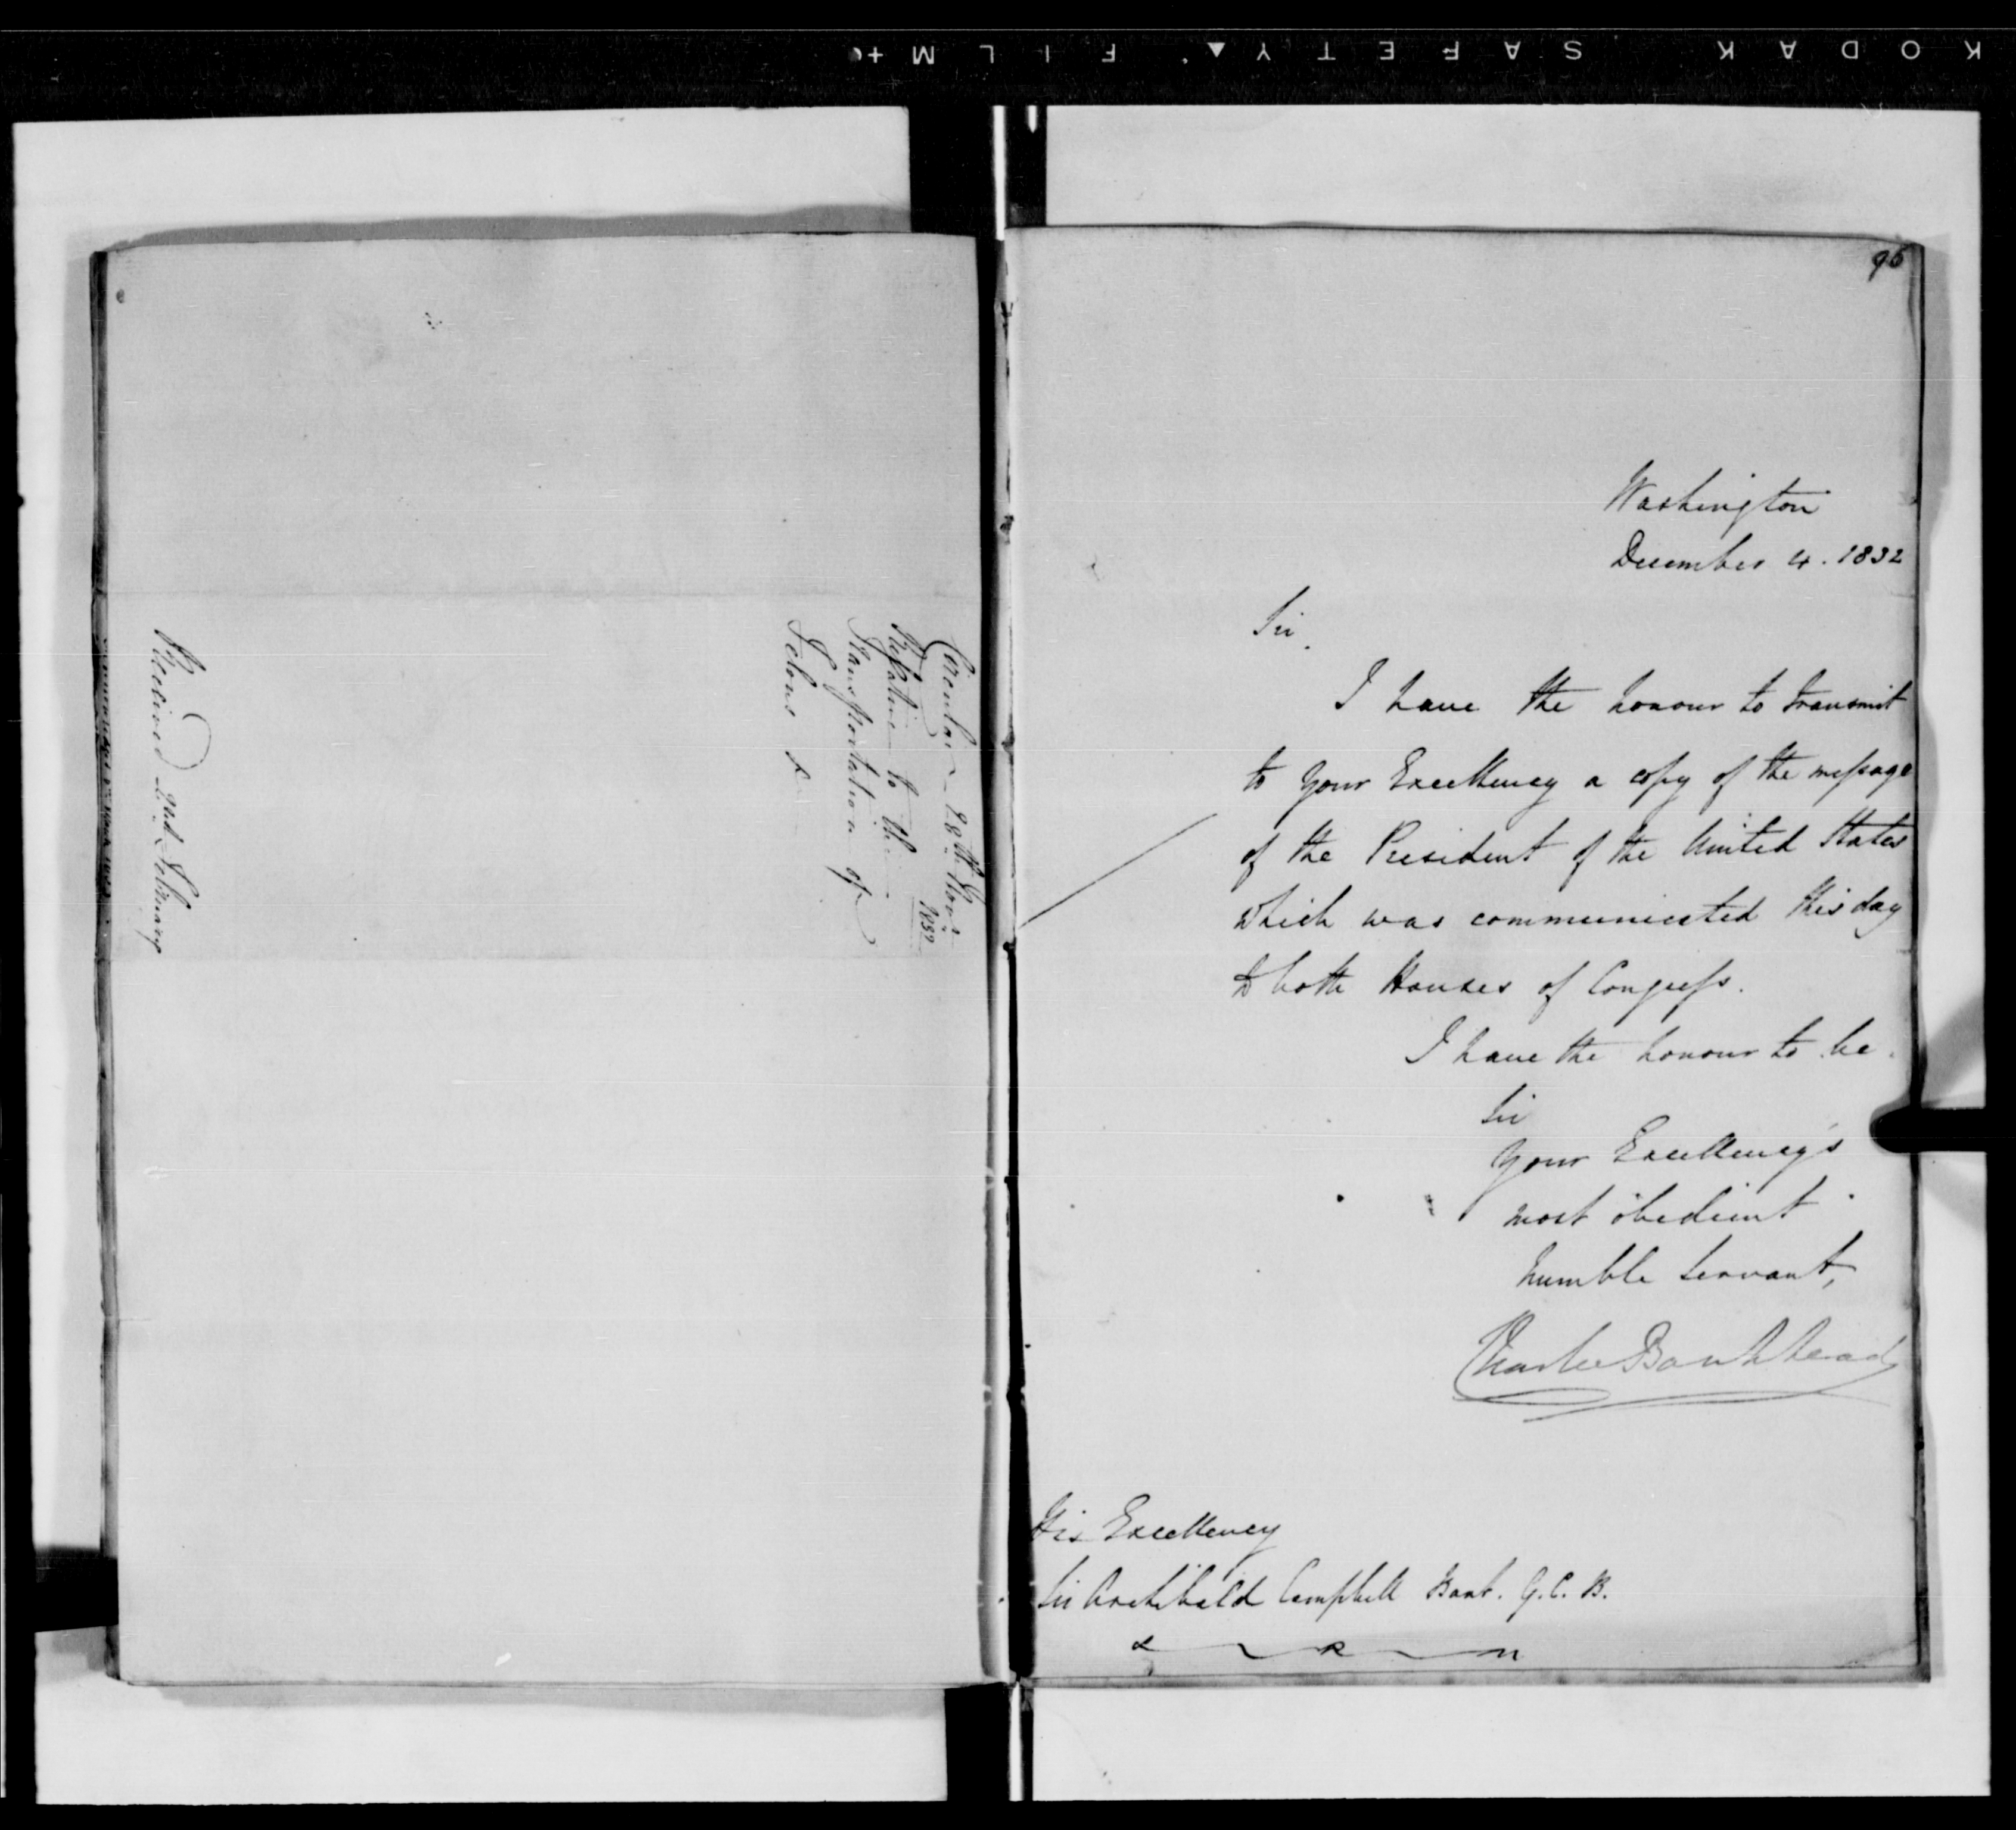 KODAK SAFETY FILM
Circular 28th Novr.
1832
Relative to the
Transportation of
Felons &
Received 2nd February
96
Washington
December 4. 1832
Sir.
I have the honour to transmit
to Your Excellency a copy of the message
of the President of the United States
which was communicated this day
to both Houses of Congress.
I have the honour to be.
Sir
Your Excellency's
most obedient
humble servant,
Charles Bankhead
His Excellency
Sir Archibald Campbell Bart. G.C.B.